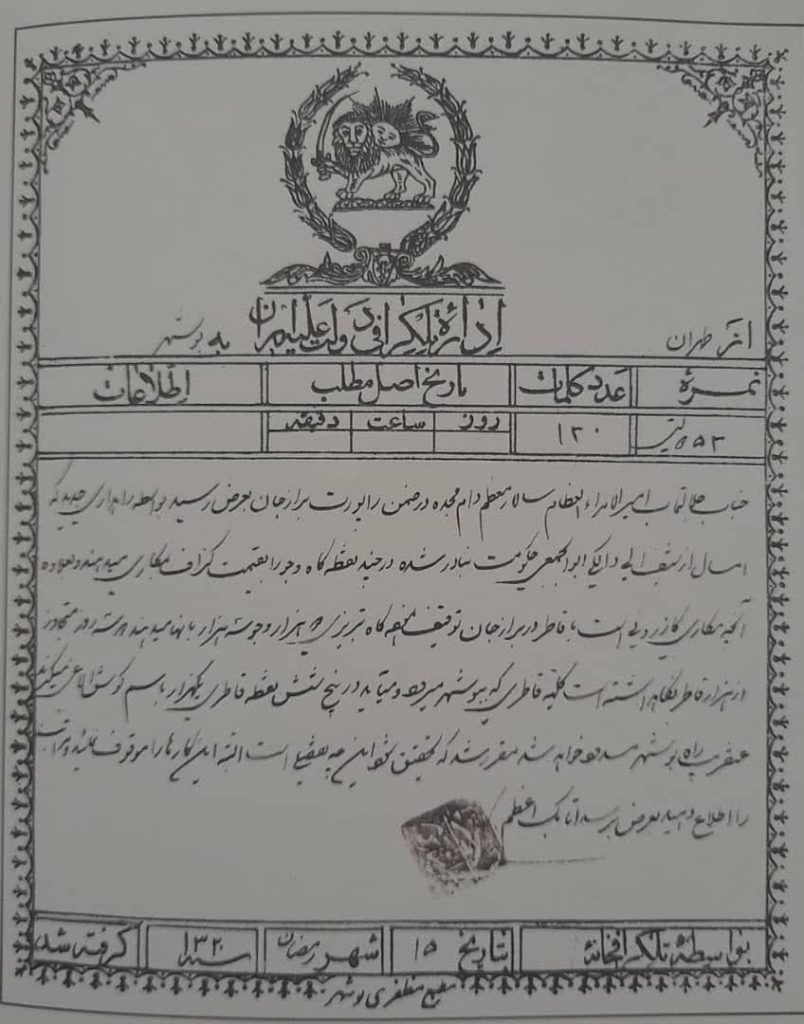 ادارۀ تلگرافی دولت علیه ایران
از طهران به بوشهر
نمره عدد کلمات تاریخ اصل مطلب اطلاعات
روز ساعت دقیقه
۵۳ ۱۲۰
جناب جلالتمآب امیرالامراء العظام سالار معظم دام مجده در ضمن راپورت برازجان بعرض رسید بواسطه راهداری جدید که
امسال از شیف الی دالکی ابوابجمعی حکومت بنادر شده در چند نقطه کاه و جو را بقیمت گزاف بمکاری میدهند و بعلاوه
آنچه مکاری کازرونی است با قاطر در برازجان توقیف کاه تبریزی هزار و جو سه هزار بآنها میدهند سه روز متجاوز
از هزار قاطر نگاه داشته است کلیه قاطری که ببوشهر میرود و میآید در پنج شش نقطه قاطری یکهزار باسم میگیرند
عنقریب راه بوشهر مسدود خواهد شد مقرر شد که تحقیق کنید این چه تفصیل است البته این کارها را موقوف نمائید و مراتب
را اطلاع دهید بعرض برسد اتابک اعظم
بواسطه تلگرافخانه بتاریخ ۱۵ شهر رمضان سنه ۱۳۲۰ گرفته شد
مطبع مظفری بوشهر